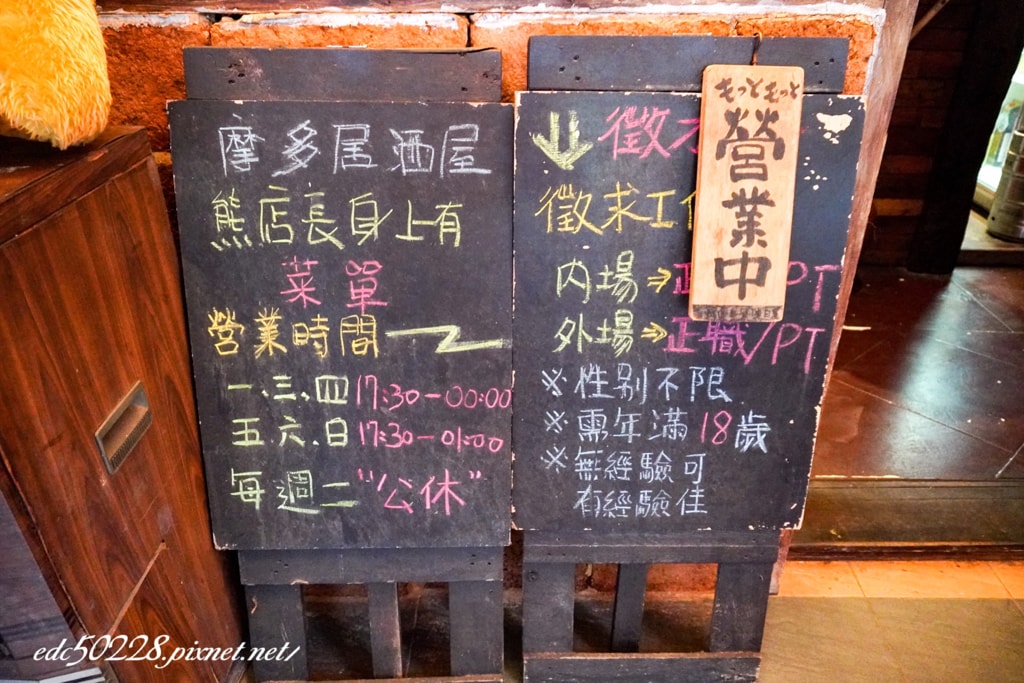 摩多居酒屋
熊店長身上有
菜單
營業時間
一、三、四 17:30-00:00
五、六、日 17:30-01:00
每週二"公休"
徵才
徵求工作
內場→正職/PT
外場→正職/PT
※性別不限
※需年滿18歲
※無經驗可
有經驗佳
もっともっと
營業中
edc50228.pixnet.net/